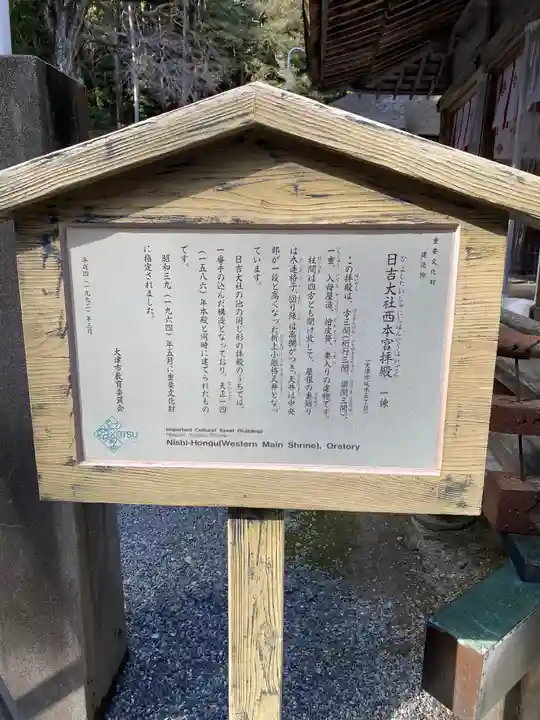 重要文化財
建造物
日吉大社西本宮拝殿 一棟
ひよしたいしゃにしほんぐうはいでん
この拝殿は、方三間(桁行三間、梁間三間)、
一重、入母屋造、檜皮葺、妻入りの建物です。
柱間は四方とも開け放して、屋根の妻飾り
は木連格子、回り縁は高欄がつき、天井は中央
部が一段と高くなった折上小組格天井となっ
ています。
日吉大社の他の同じ形の拝殿のうちでは、
一番手の込んだ構造となっており、天正一四
(一五八六)年本殿と同時に建てられたもの
です。
昭和三九(一九六四)年五月に重要文化財
に指定されました。
平成四(一九九二)年三月
大津市教育委員会
OTSU
Important Cultural Asset (Building)
Hiyoshi Taisha Shrine
Nishi-Hongu(Western Main Shrine), Oratory